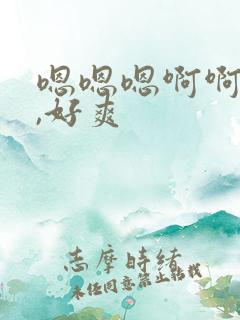 嗯嗯嗯啊啊
,好爽
志摩時緒
未任同意禁止转载